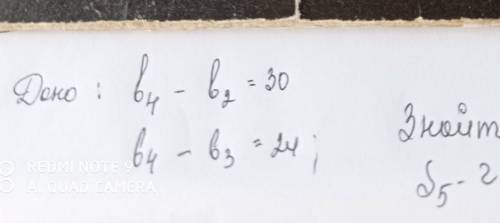 Дано: b₄ - b₂ = 30
b₄ - b₃ = 24;
Знайт
S₅ - ?
REDMI NOTE 9
AI QUAD CAMERA